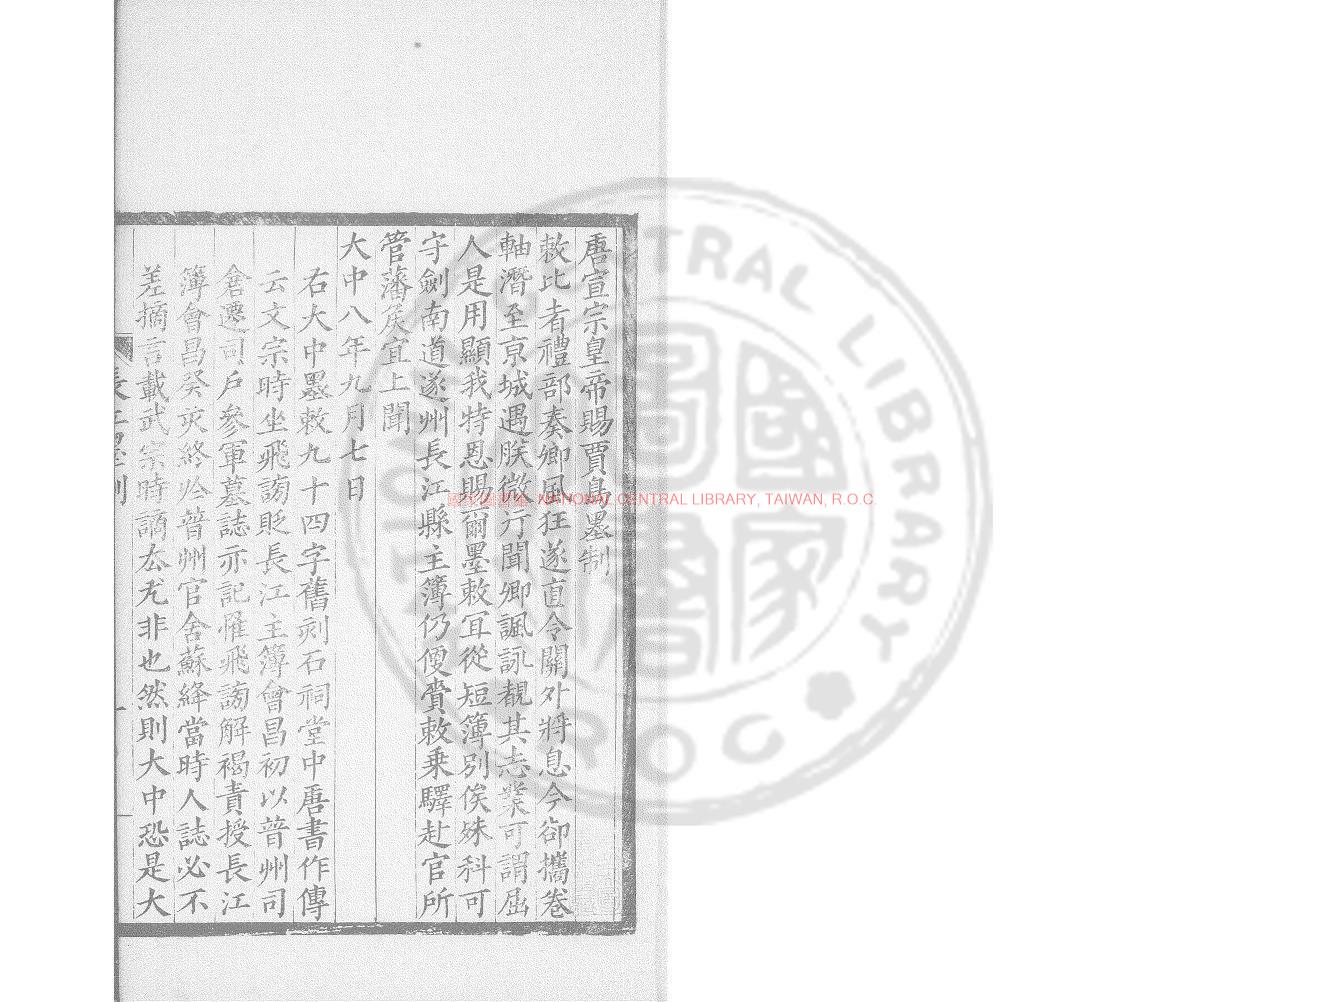 唐宣宗皇帝賜賈島墨制
敕比者禮部奏卿風狂遂直令關外將息今卻攜卷
軸潛至京城遇朕微行聞卿諷詠覩其志業可謂屈
人是用顯我特恩賜爾墨敕宜從短簿別俟殊科可
守劍南道遂州長江縣主簿仍便賫敕乗驛赴官所
管藩侯宜上聞
大中八年九月七日
右大中墨敕九十四字舊刻石祠堂中唐書作傳
云文宗時坐飛謗貶長江主簿會昌初以普州司
倉遷司戶參軍墓誌亦記罹飛謗解褐責授長江
簿會昌癸亥終於普州官舍蘇絳當時人誌必不
差摭言載武宗時謫去尤非也然則大中恐是大
長江墨制
國家圖書館 NATIONAL CENTRAL LIBRARY, TAIWAN, R.O.C.
CENTRAL LIBRARY
R O C
國家圖書